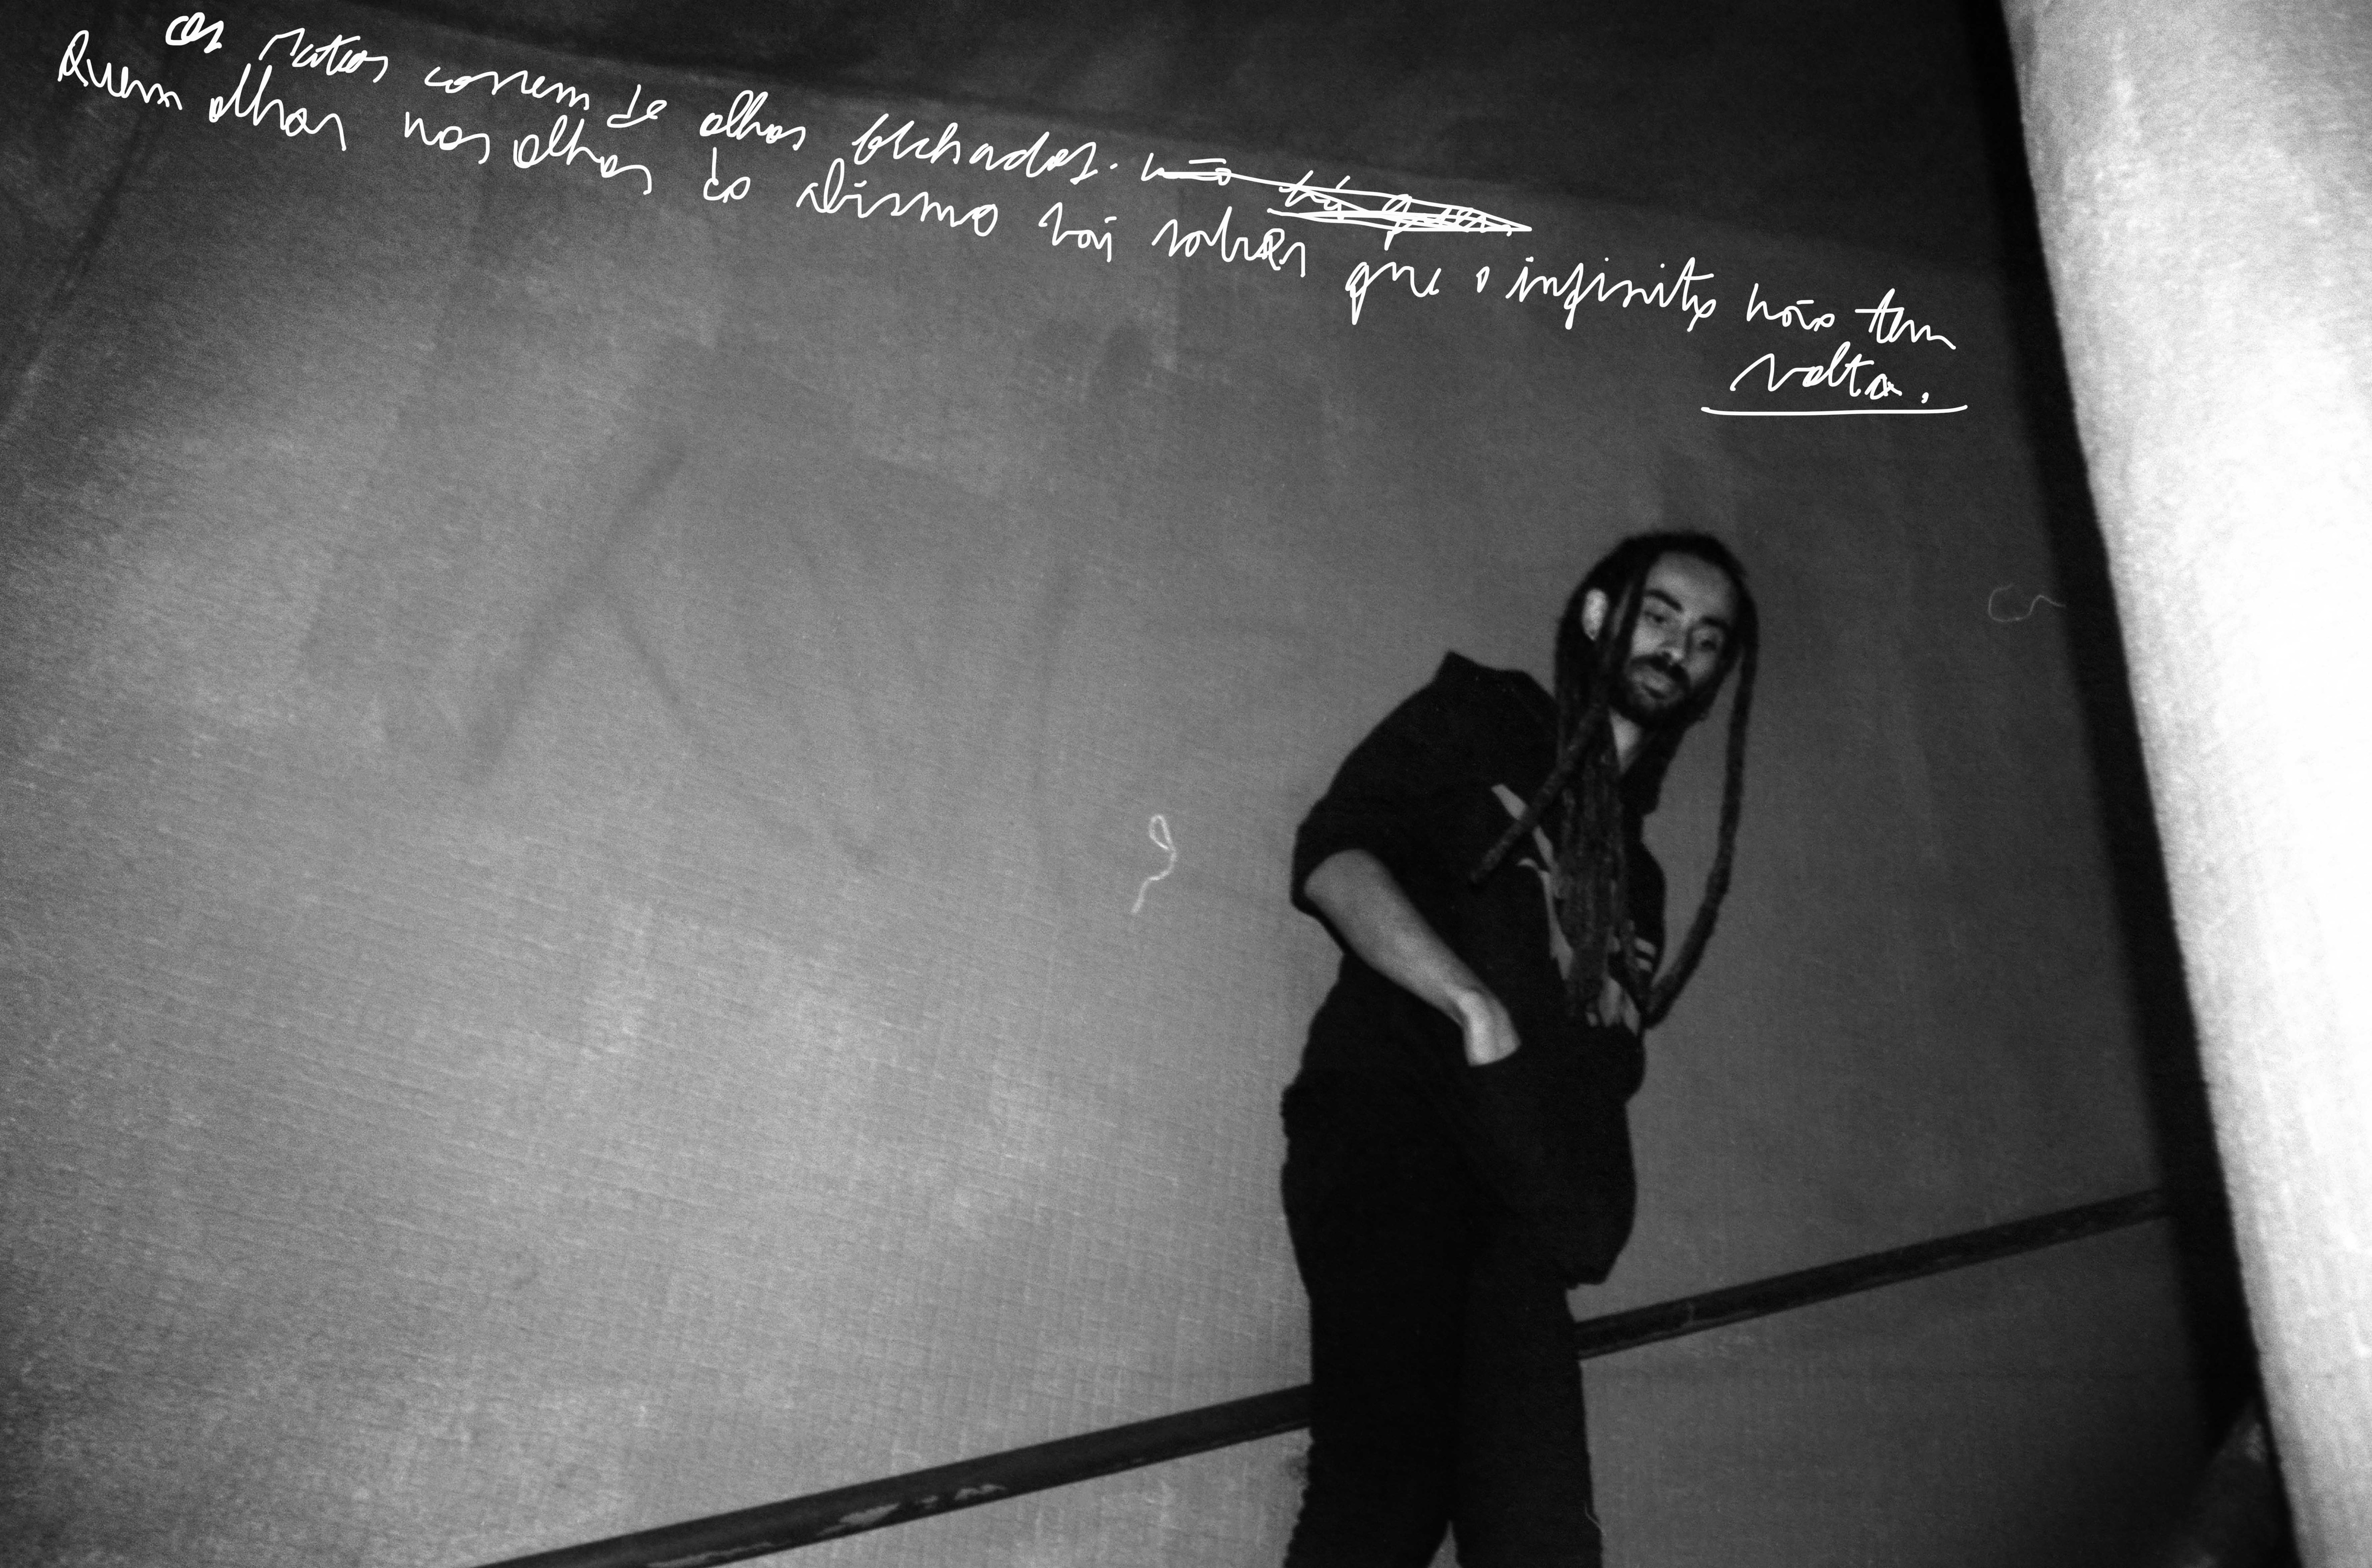 os ratos correm de olhos fechados. não
Quem olhar nos olhos do abismo vai saber que o infinito não tem
volta.